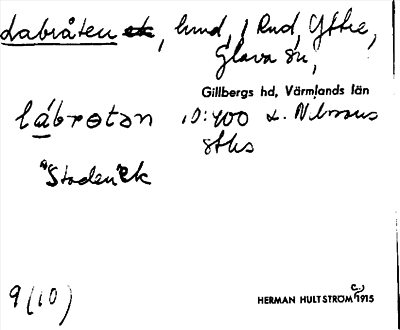 Labråten, hund, i Rud, Yttre,
Glava sn,
Gillbergs hd, Värmlands län
lábrɵtən 10:400 L. Nilssons
"Staden"
9(10)
HERMAN HULTSTRÖM 1915